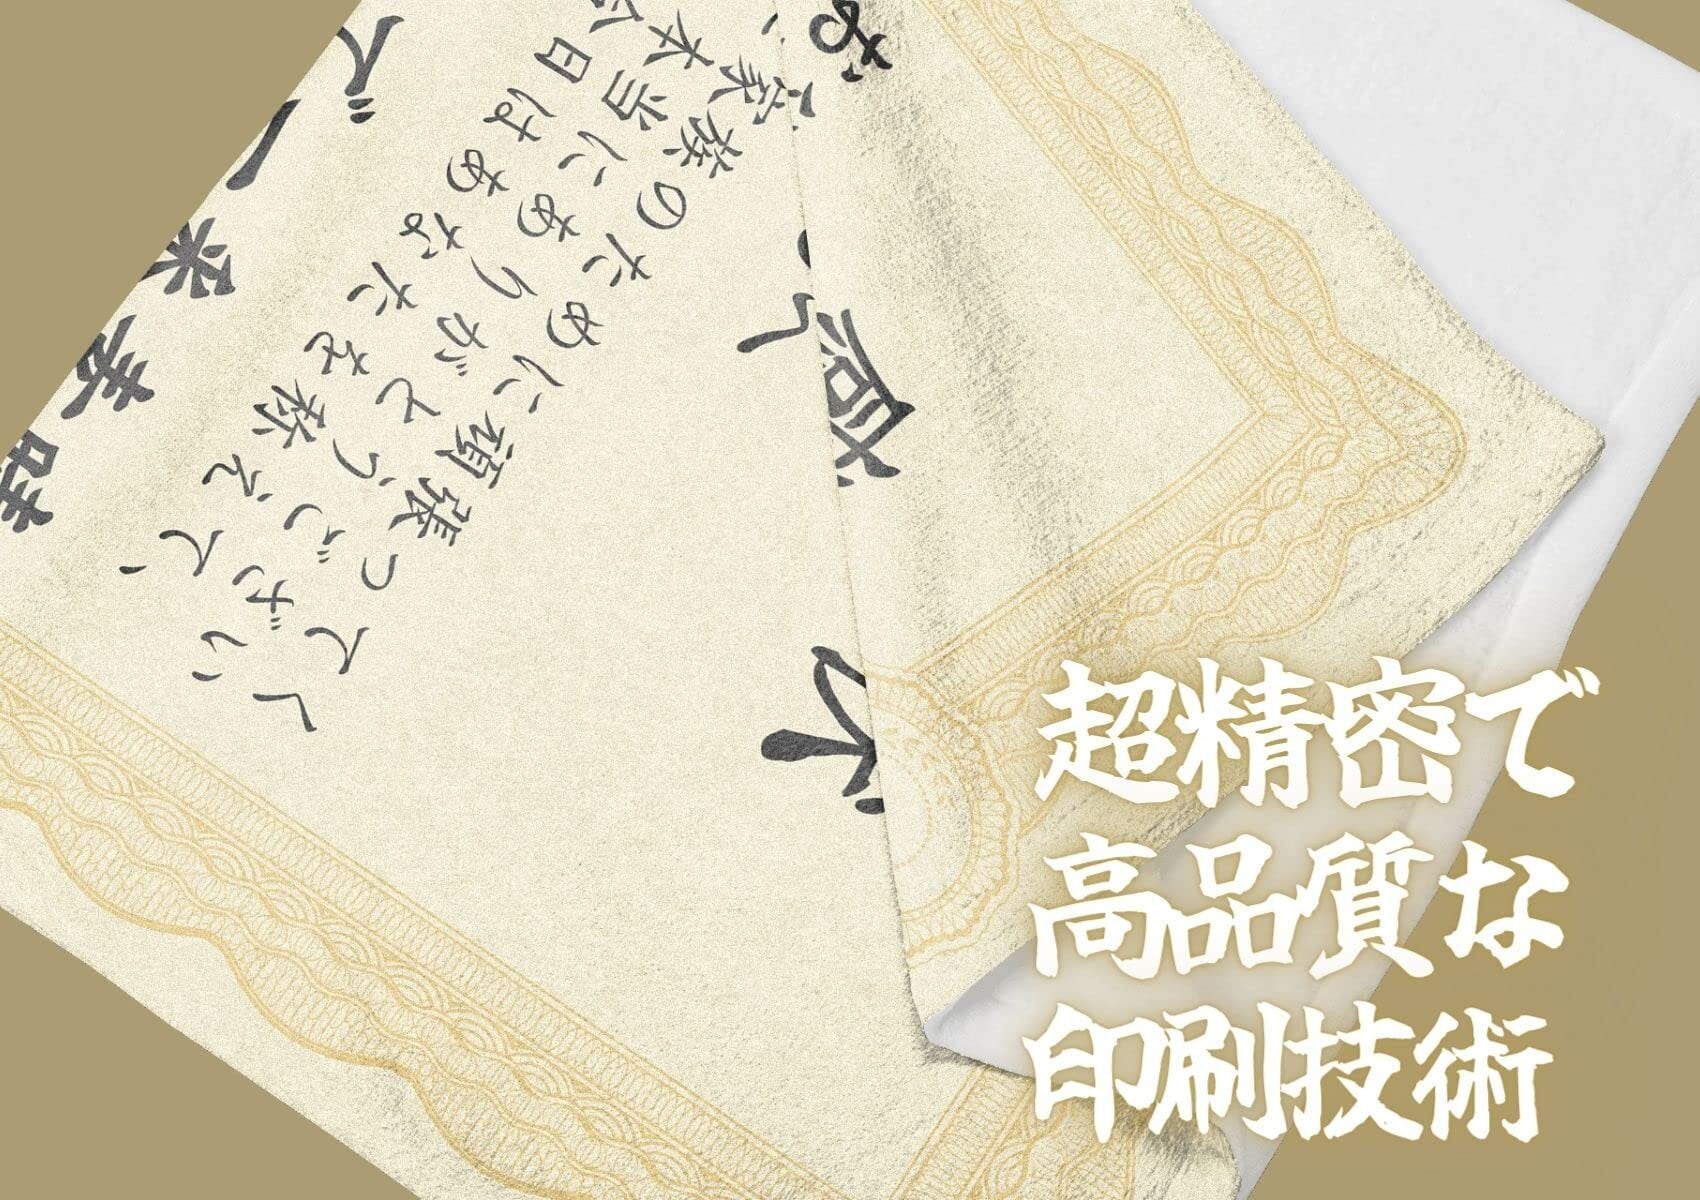 家族のために頑張ってく
本当にありがとうござい
日はあなたを称えて、
感
超精密で
高品質な
印刷技術